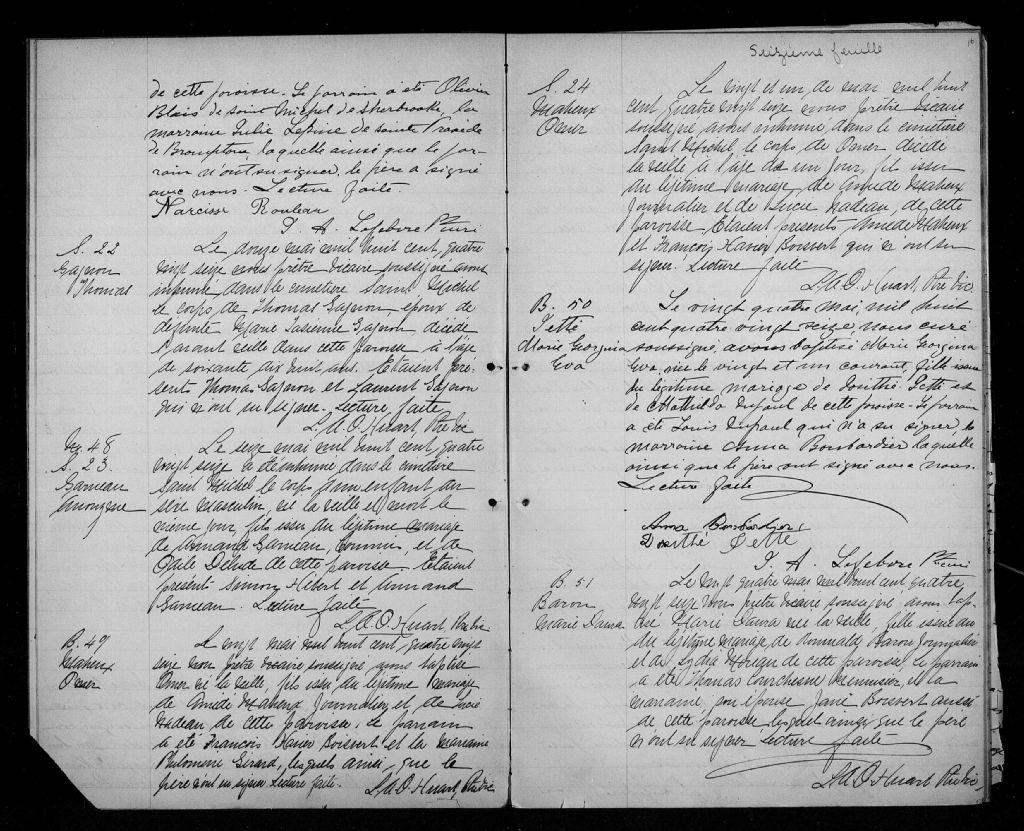 de cette paroisse. Le parrain a été Olivier
Blais de saint Michel de Sherbrooke, la
marraine Julie Lepine de sainte Praxède
de Brompton, laquelle ainsi que le par-
rain n'ont su signer, le père a signé
avec nous. Lecture faite
Narcisse Rouleau
J. A. Lefebvre Ptre curé
S. 22
Gagnon
Thomas
Le douze mai mil huit cent quatre
vingt seize nous prêtre vicaire soussigné avons
inhumé dans le cimetière Saint Michel
le corps de Thomas Gagnon époux de
défunte Marie Gagnon décédé
l'avant veille dans cette paroisse à l'âge
de soixante dix huit ans. Etaient pré-
sents Thomas Gagnon et Laurent Gagnon
qui n'ont su signer. Lecture faite
L.A.O. Huart Ptre Vic
48
S. 23
Garneau
Anonyme
Le seize mai mil huit cent quatre
vingt seize a été inhumé dans le cimetière
Saint Michel le corps d'un enfant du
sexe masculin, né la veille et mort le
même jour, fils issu du légitime mariage
de Armand Garneau, Commis, et de
Odile Delude de cette paroisse. Etaient
présents Simon Hébert et Armand
Garneau. Lecture faite
L.A.O. Huart Ptre Vic
B. 49
Maheux
Omer
Le vingt mai mil huit cent quatre vingt
seize nous prêtre vicaire soussigné avons baptisé
Omer né la veille, fils issu du légitime mariage
de Amédé Maheux Journalier, et de Lucie
Nadeau, de cette paroisse. Le parrain
a été François Xavier Boisvert et la marraine
Philomène Girard, lesquels ainsi que le
père n'ont su signer. Lecture faite. L.A.O. Huart Ptre Vic
Seizième feuille
16
S. 24
Maheux
Omer
Le vingt et un de mai mil huit
cent quatre vingt seize nous prêtre vicaire
soussigné, avons inhumé, dans le cimetière
Saint Michel, le corps de Omer décédé
la veille à l'âge d'un jour, fils issu
du légitime mariage de Amédé Maheux
Journalier et de Lucie Nadeau, de cette
paroisse. Etaient présents Amédé Maheux
et François Xavier Boisvert qui n'ont su
signer. Lecture faite
L.A.O. Huart Ptre Vic
B. 50
Petté
Marie Georgina
Eva
Le vingt quatre mai, mil huit
cent quatre vingt seize, nous curé
soussigné, avons baptisé Marie Georgina
Eva, née le vingt et un courant, fille issue
du légitime mariage de Dosithé Petté et
de Mathilda Dupaul de cette paroisse. Le parrain
a été Louis Dupaul qui n'a su signer, la
marraine Anna Bombardier laquelle
ainsi que le père ont signé avec nous.
Lecture faite
Anna Bombardier
Dosithé Petté
J. A. Lefebvre Ptre curé
B. 51
Baron
Marie Laura
Le vingt quatre mai mil huit cent quatre
vingt seize nous prêtre vicaire soussigné avons bap-
tisé Marie Laura née la veille, fille issue
du légitime mariage de Romuald Baron Journalier
et de Lydia de cette paroisse. Le parrain
a été Thomas Courchesne Menuisier, et la
marraine, son épouse Boisvert aussi
de cette paroisse lesquels ainsi que le père
n'ont su signer, Lecture faite
L.A.O. Huart Ptre Vic